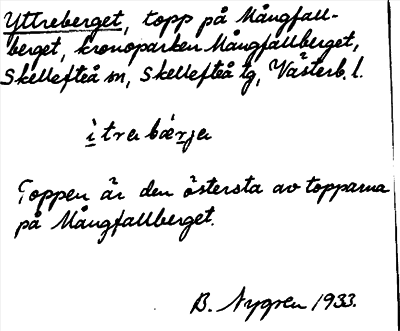 Yttreberget, topp på Mångfall-
berget, kronoparken Mångfallberget,
Skellefteå m, Skellefteå tg, Västerb. l.
i̠tra bær̠ja
Toppen är den östersta av topparna
på Mångfallberget.
B. Nygren 1933.